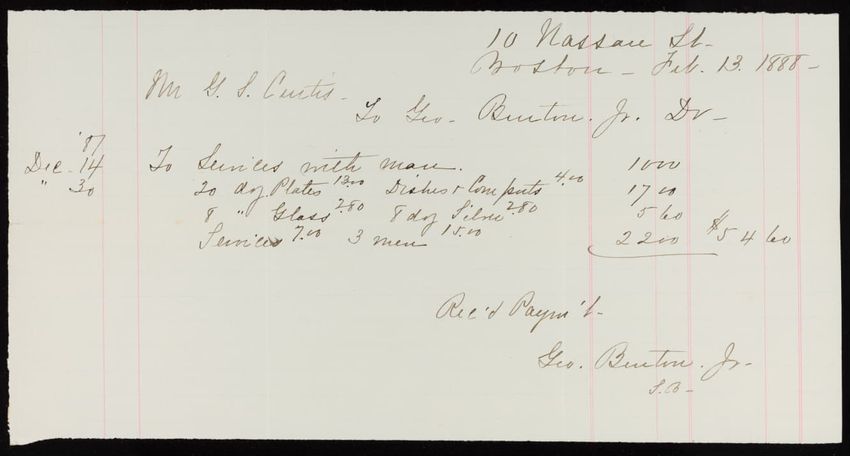 10 Nassau St-
Boston - Feb. 13. 1888-
Mr G. S. Curtis-
To Geo- Burton. Jr. Dr-
'87
Dec. 14 To Services with man. 10 00
" 30 20 doz Plates 13.00 Dishes & Comports 4.00 17 00
8 " Glass 2.80 8 doz Silver 2.80 5 60
Services 7.00 3 men 15.00 22 00 $54 60
Rec'd Paym't-
Geo. Burton. Jr-
S.B-